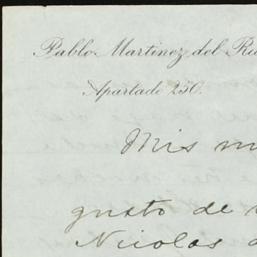 Pablo Martinez del Rio
Apartado 250.
Mis
gusto de
Nicolas